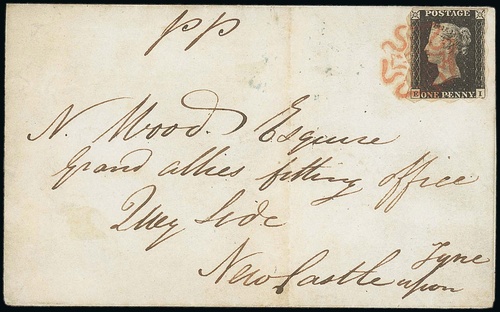 pp
POSTAGE
E ONE PENNY I
N. Wood. Esquire
Grand allies fitting office
Quay Side
New Castle upon
Tyne